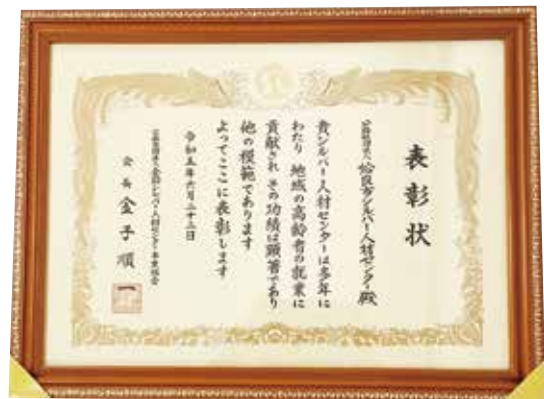 表彰状
公益社団法人 姶良市シルバー人材センター殿
貴シルバー人材センターは多年に
わたり 地域の高齢者の就業に
貢献され その功績は顕著であり
他の模範であります
よってここに表彰します
令和五年六月二十三日
公益社団法人全国シルバー人材センター事業協会
会長 金子順一